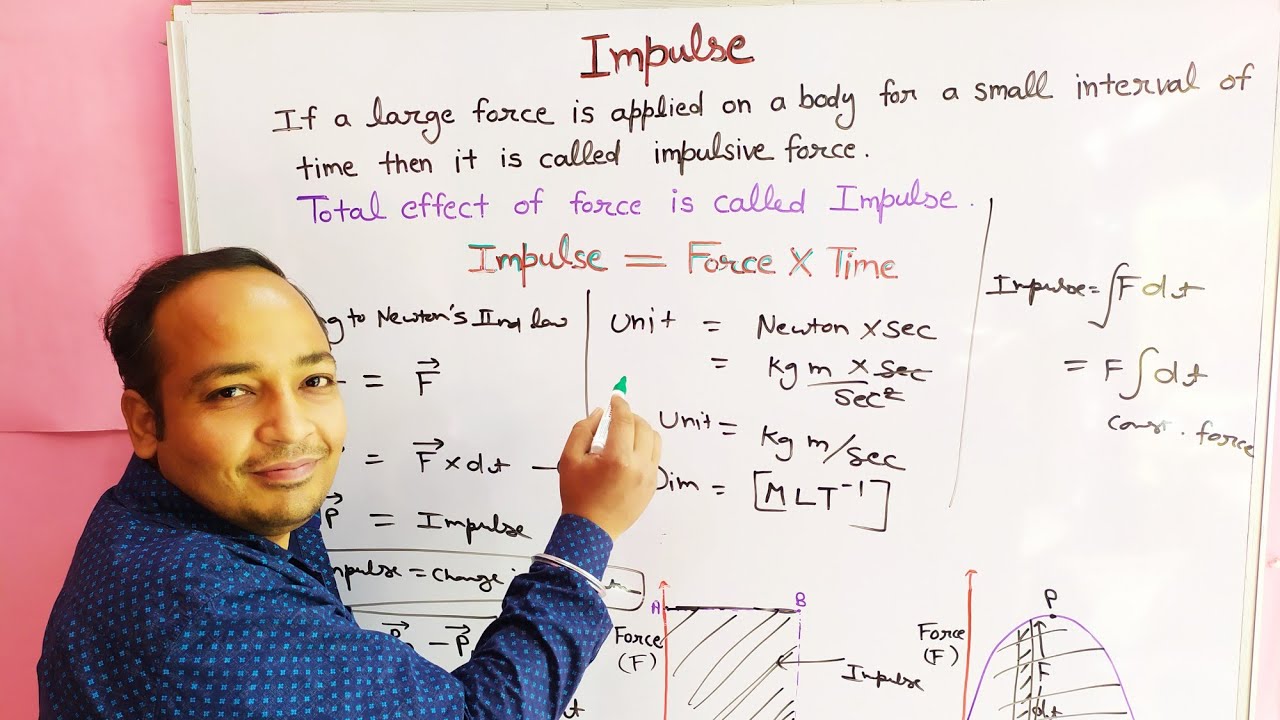 Impulse
If a large force is applied on a body for a small interval of
time then it is called impulsive force.
Total effect of force is called Impulse.
Impulse = Force X Time
to Newton's IInd law
= F⃗
= F⃗ × dt —
P⃗ = Impulse
Impulse = Change
− P⃗
Unit = Newton X sec
= Kg m X sec
sec²
Unit = Kg m/sec
Dim = [MLT⁻¹]
Impulse = ∫F dt
= F ∫dt
const. force
A
B
Force
(F)
Impulse
Force
(F)
P
F
dt